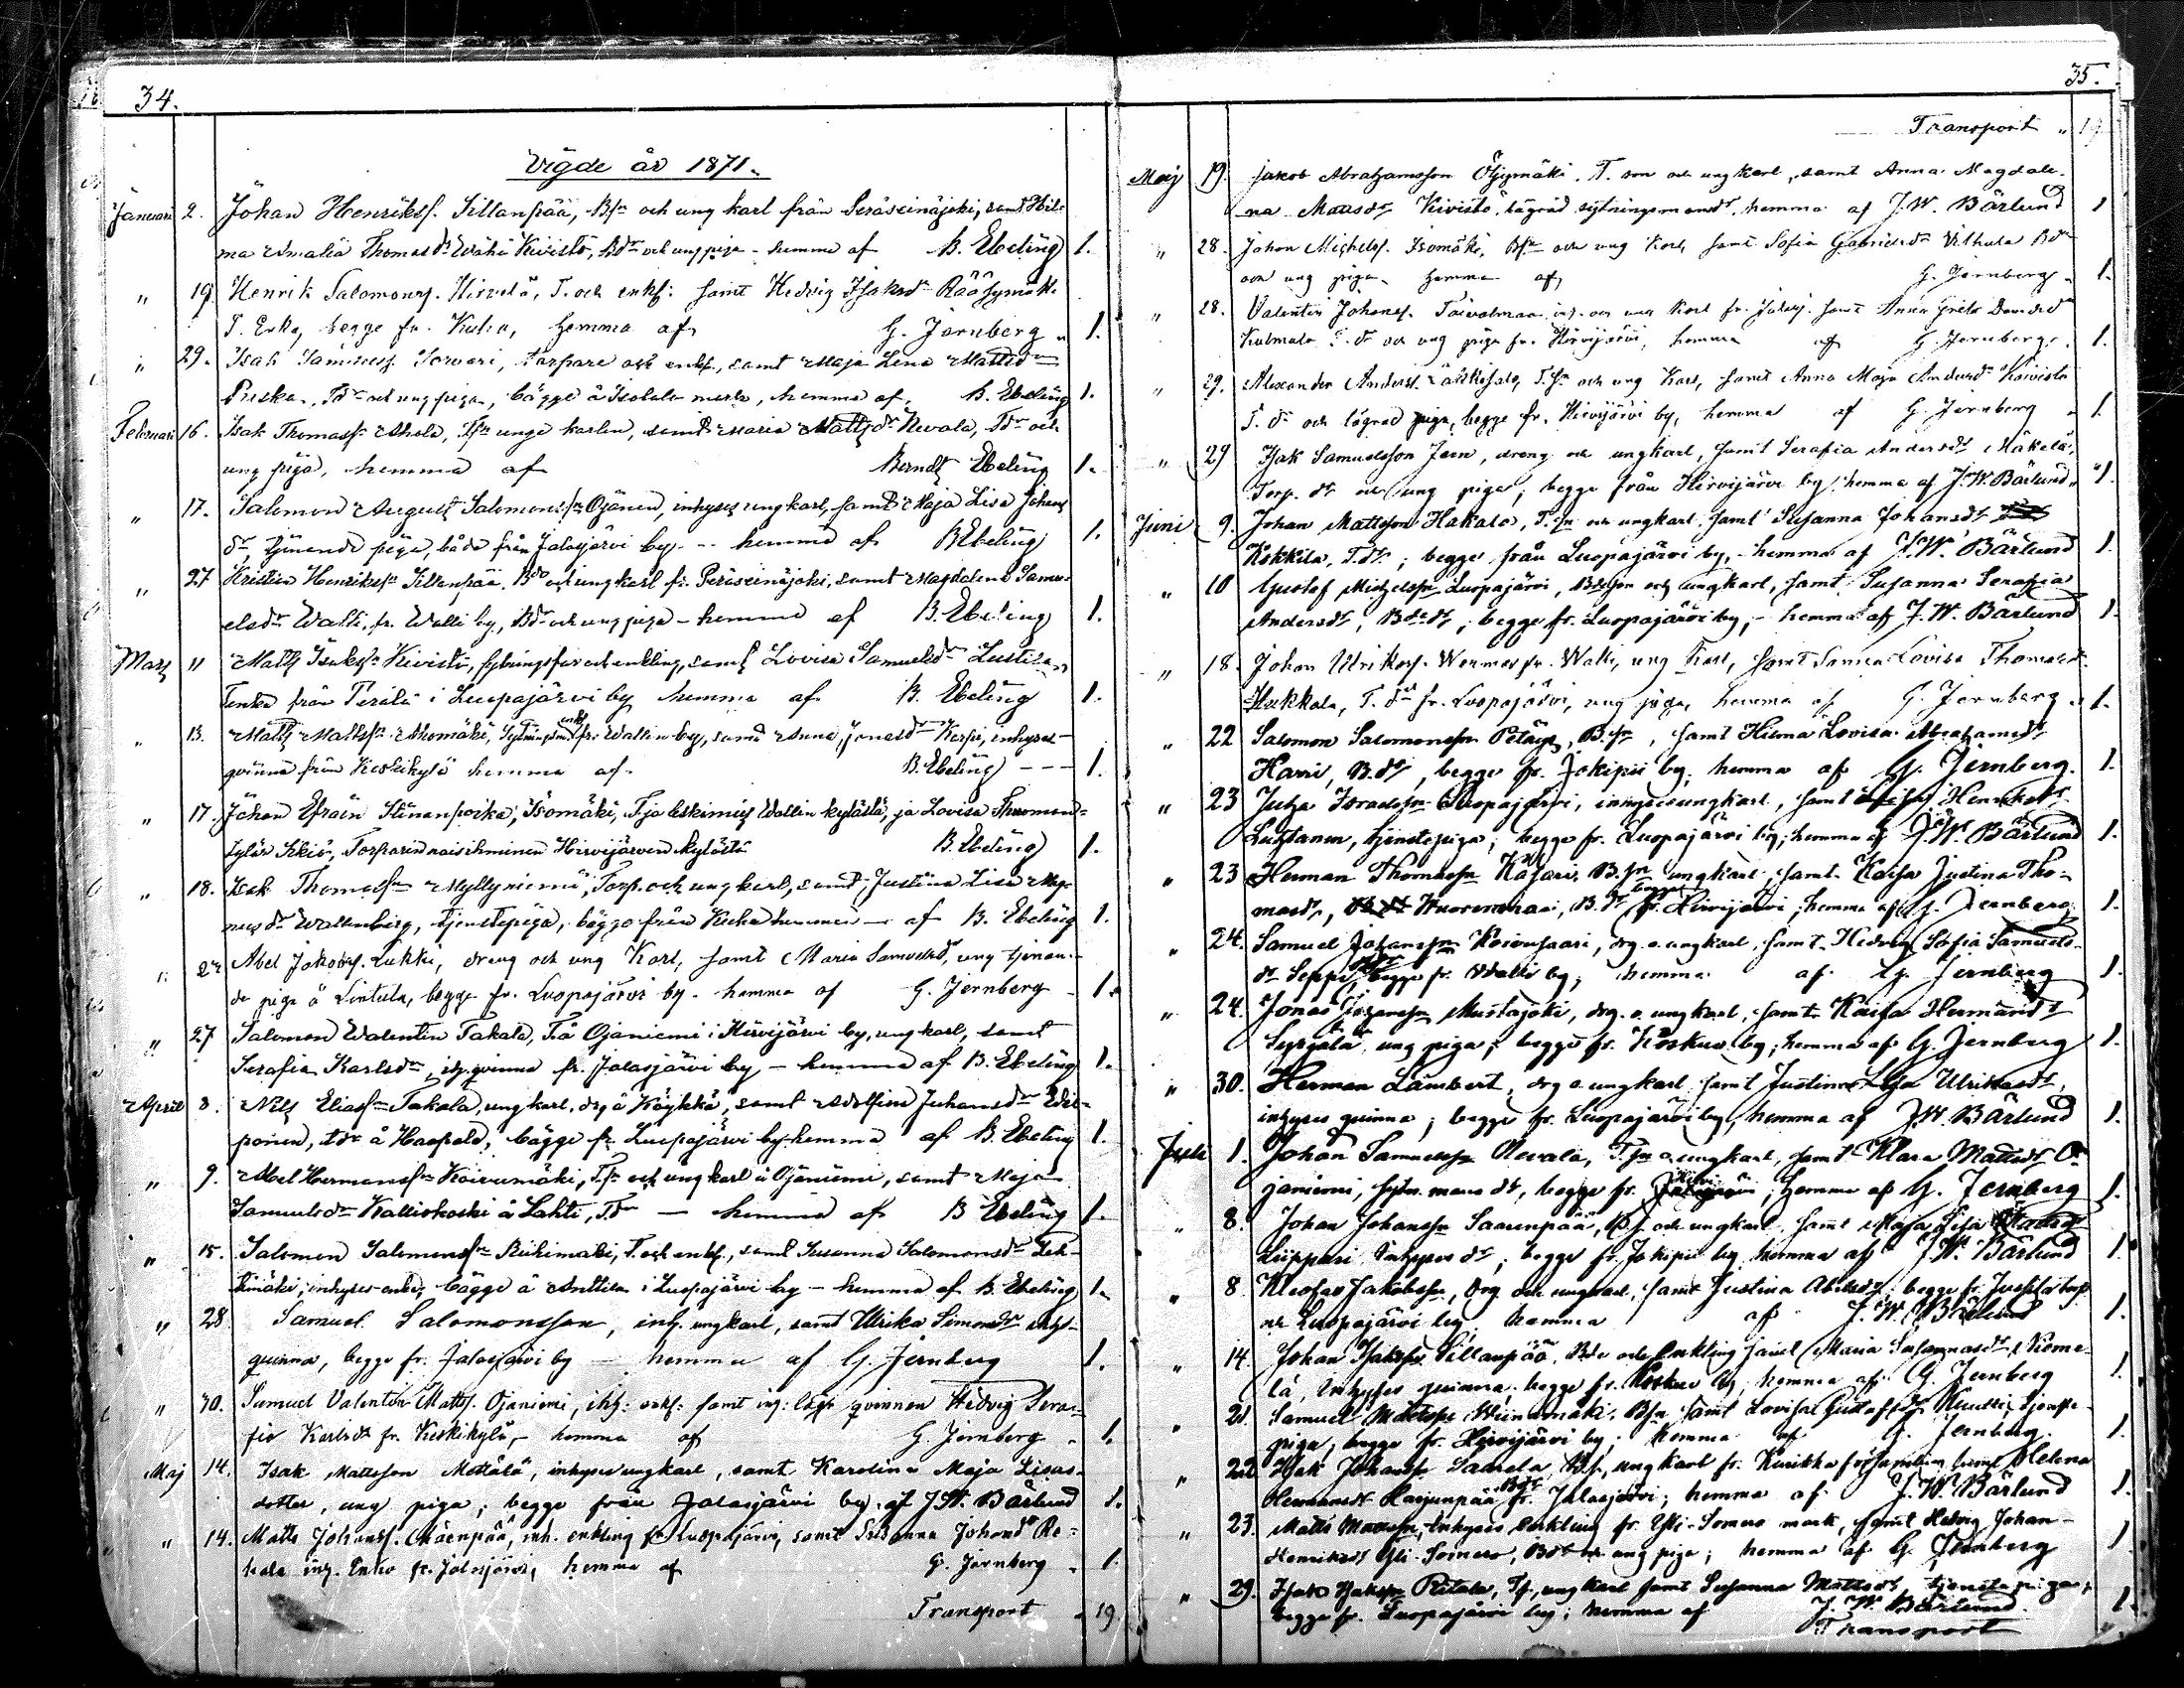 34.
Vigde år 1871.
Januari 2. Johan Henrikss. Sillanpää, Bsn och ung karl från Peräseinäjoki, samt Hil-
ma Amalia Thomasdr Wähä Kivistö, Bdr och ung piga - hemma af B. Ebeling 1.
" 19 Henrik Salomonss. Hirvelä, T. och enkl: samt Hedvig Isaksdr
T. Enka, begge fr. hemma af G. Jernberg " 1.
" 29. Isak Samuelss. Sorvari, Torpare och enkl., samt Maja Lena Mattsdr
Tdr och ung piga, bägge å hemma af B. Ebeling 1.
Februari 16. Isak Thomassn Ahola, Tsn unge karlen, samt Maria Mattsdr Nevala, Tdr och
ung piga, hemma af Berndt Ebeling 1.
" 17. Salomon August Salomonssn Ojanen, inhyses ungkarl, samt Maja Lisa Johans
dr tjenande piga, båda från Jalasjärvi by -- hemma af B Ebeling 1.
" 27 Kristian Henrikssn Sillanpää, och ungkarl fr. Peräseinäjoki, samt Magdalena Samu-
elsdr Walli, fr. Walli by, Bdr och ung piga - hemma af B. Ebeling 1.
Mars 11 Matts Isakssn Kivistö, och enkling, samt Lovisa Samuelsdr
Enka från Perälä i Luopajärvi by hemma af B. Ebeling 1.
" 13. Matts Mattssn Ahomäki, enkl fr. Wallin by, samt Anna Jonasdr inhyses-
qvinna från Keskikylä hemma af B. Ebeling --- 1.
" 17. Johan Efraim Iisomäki, T. ja leskimies Wallin kylästä, ja Lovisa Thomen-
tytär Torparin naisihminen Hirvijärven kylästä B. Ebeling 1.
" 18. Isak Thomassn Myllyniemi, Torp. och ung karl, samt Justina Lisa Mag-
nusdr Wallenberg, tjenstepiga, bägge från hemma - af B. Ebeling 1.
" Abel Jakobss. Lukki, dreng och ung Karl, samt Maria Samuelsdr, ung tjenan-
de piga å Lintula, begge fr. Luopajärvi by - hemma af G. Jernberg - 1.
" 27 Salomon Walentin Takala, T. å Ojaniemi i Hirvijärvi by, ung karl, samt
Serafia Karlsdr, qvinna fr. Jalasjärvi by - hemma af B. Ebeling 1.
April 8. Nils Eliassn Takala, ungkarl, drg å Köykkä, samt Adolfina Juhansdr
Tdr å Haapala, bägge fr. Luopajärvi by - hemma af B. Ebeling 1.
" 9. Abel Hermanssn Koivumäki, Tsn och ung karl å Ojaniemi, samt Maja
Samuelsdr Kalliokoski å Lahti, Tdr - hemma af B Ebeling 1.
" 15. Salomon Salomonssn Riihimäki, T. och enkl., samt Susanna Salomonsdr
inhyses enka, bägge å Anttila i Luopajärvi by - hemma af B. Ebeling 1.
" 28. Samuel Salomonsson, inh. ungkarl, samt Ulrika Simonsdr inhys-
quinna, begge fr. Jalasjärvi by - hemma af G. Jernberg 1.
" 30. Samuel Valentin Mattss. Ojaniemi, inh: enkl: samt inh: lägr. qvinnan Hedvig Sera-
fia Karlsdr fr. Keskikylä, - hemma af G. Jernberg - 1.
Maj 14. Isak Mattsson Mettälä, inhyses ungkarl, samt Karolina Maja Lisas-
dotter, ung piga; begge från Jalasjärvi by af J. W. Bärlund 1.
" 14. Matts Johanss. Mäenpää, inh. enkling fr. Luopajärvi, samt Susanna Johansdr
inh. Enka fr. Jalasjärvi, hemma af G. Jernberg - 1.
Transport " 19.
35.
Transport " 19
Maj 19. Jakob Abrahamsson Öljymäki, T. son och ung karl, samt Anna Magdale-
na Mattsdr Kivistö, lägrad sytningsmansdr, hemma af J. W. Bärlund 1
" 28. Johan Michelss. Isomäki, Bsn och ung Karl samt Sofia Gabrielsdr Bdr
och ung piga - hemma af G. Jernberg - 1.
" 28. Valentin Johanss. Taivalmaa, inh. och ung Karl fr. Jalasj. samt Anna Greta Davidsdr
T. dr och ung piga fr. Hirvijärvi, hemma af G. Jernberg. 1.
" 29. Alexander Anderss. T. sn och ung Karl, samt Anna Maja Andersdr Koivisto
T. dr och lägrad piga, begge fr. Hirvijärvi by, hemma af G. Jernberg " 1.
" 29 Isak Samuelsson Jern, dreng och ungkarl, samt Serafia Andersdr Mäkelä,
Torp. dr och ung piga; begge från Hirvijärvi by; hemma af J. W. Bärlund " 1.
Juni 9. Johan Mattsson Hakala, T. sn och ungkarl, samt Susanna Johansdr
Kokkila, T. dr; begge från Luopajärvi by, - hemma af J. W. Bärlund 1.
" 10 Gustaf Michelssn Luopajärvi, och ungkarl, samt Susanna Serafia
Andersdr, begge fr. Luopajärvi by, - hemma af J. W. Bärlund 1.
" 18. Johan Ulrikss. Wermas fr. Walli, ung karl, samt Sanna Lovisa Thomasdr
Hukkala, T. dr fr. Luopajärvi, ung piga, hemma af G. Jernberg " 1.
" 22 Salomon Salomonssn Petäys, B. sn, samt Hilma Lovisa Abrahamsdr
Harri, B. dr, begge fr. Jokipii by. hemma af G. Jernberg. 1.
" 23 Luopajärvi, inhysesungkarl, samt Henriksdr
Luhtanen, tjenstepiga; begge fr. Luopajärvi by; hemma af J. W. Bärlund 1.
" 23 Herman Thomassn B. sn ungkarl, samt Kaisa Justina Tho-
masdr, Wuorenmaa, B. dr begge fr. Hirvijärvi; hemma af G. Jernberg 1.
" 24. Samuel Johanssn Koivusaari, drg. o. ungkarl, samt Hedvig Sofia Samuels-
dr Seppi, begge fr. Walli by; hemma af G. Jernberg 1.
" 24. Jonas Johanssn Mustajoki, drg. o. ungkarl, samt Kaisa Hermansdr
ung piga; begge fr. Koskue by; hemma af G. Jernberg 1.
" 30. Herman Lambert, drg o ungkarl samt Justina Lisa Ulriksdr,
inhyses quinna; begge fr. Luopajärvi by, hemma af J. W. Bärlund 1.
Juli 1. Johan Samuelssn Nevala, T. sn o ungkarl, samt Klara Mattsdr O-
janiemi, sytn. mans dr, begge fr. hemma af G. Jernberg 1.
" 8. Johan Johanssn Saarenpää, B. s. och ungkarl, samt Maja Lisa
Luppari Inhyses dr; begge fr. Jokipii by hemma af J. W. Bärlund 1.
" 8 Kleofas Jakobssn, Drg och ungkarl, samt Justina begge fr.
Luopajärvi by, hemma af J. W. Bärlund 1.
" 14. Johan Isakssn Sillanpää, och Enkling samt Maria Susannasdr, Nieme-
lä, Inhyses quinna begge fr. Koskue by, hemma af G. Jernberg 1.
" 21. Samuel Mattssn Wiinamäki, Bsn samt Lovisa Gustafsdr tjenste-
piga, begge fr. Hirvijärvi by; hemma af G. Jernberg. 1.
" 22 Isak Johanssn Saarela, B. s., ungkarl fr. Kurikka församling samt Helena
Hermansdr Harjunpää Bdr fr. Jalasjärvi; hemma af J. W. Bärlund 1.
" 23. Matts Inhyses Enkling fr. Yli-Somero mark, samt Hedvig Johan-
Henriksdr Yli-Somero, Bdr och ung piga; hemma af G. Jernberg 1
" 29. Isak Isakssn Ts, ungkarl samt Susanna Mattsdr, tjenstepiga,
begge fr. Luopajärvi by; hemma af J. W. Bärlund. 1.
Transport